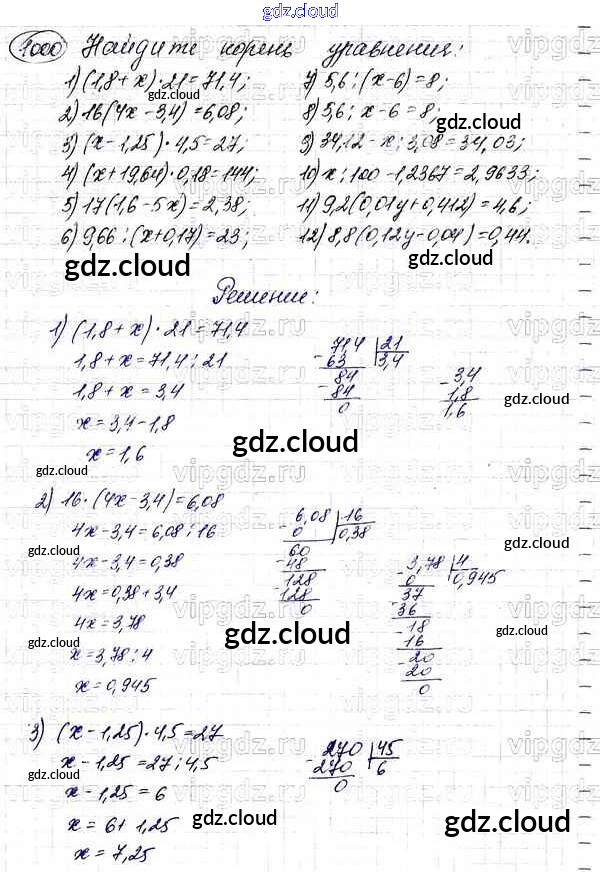 gdz.cloud
1000 Найдите корень уравнения:
1) (1,8 + x) · 21 = 71,4;
2) 16(4x - 3,4) = 6,08;
3) (x - 1,25) · 4,5 = 27;
4) (x + 19,64) · 0,18 = 144;
5) 17(1,6 - 5x) = 2,38;
6) 9,66 : (x + 0,17) = 23;
7) 5,6 : (x - 6) = 8;
8) 5,6 : x - 6 = 8;
9) 34,12 - x : 3,08 = 34,03;
10) x : 100 - 1,2367 = 2,9633;
11) 9,2(0,01y + 0,412) = 4,6;
12) 8,8(0,12y - 0,04) = 0,44.
Решение:
1) (1,8 + x) · 21 = 71,4
1,8 + x = 71,4 : 21
1,8 + x = 3,4
x = 3,4 - 1,8
x = 1,6
71,4 21
- 63 3,4
84
- 84
0
- 3,4
1,8
1,6
2) 16 · (4x - 3,4) = 6,08
4x - 3,4 = 6,08 : 16
4x - 3,4 = 0,38
4x = 0,38 + 3,4
4x = 3,78
x = 3,78 : 4
x = 0,945
- 6,08 16
0 0,38
60
- 48
128
- 128
0
- 3,78 4
0 0,945
37
- 36
- 18
16
- 20
20
0
3) (x - 1,25) · 4,5 = 27
x - 1,25 = 27 : 4,5
x - 1,25 = 6
x = 6 + 1,25
x = 7,25
- 270 45
270 6
0
gdz.cloud
vipgdz.ru